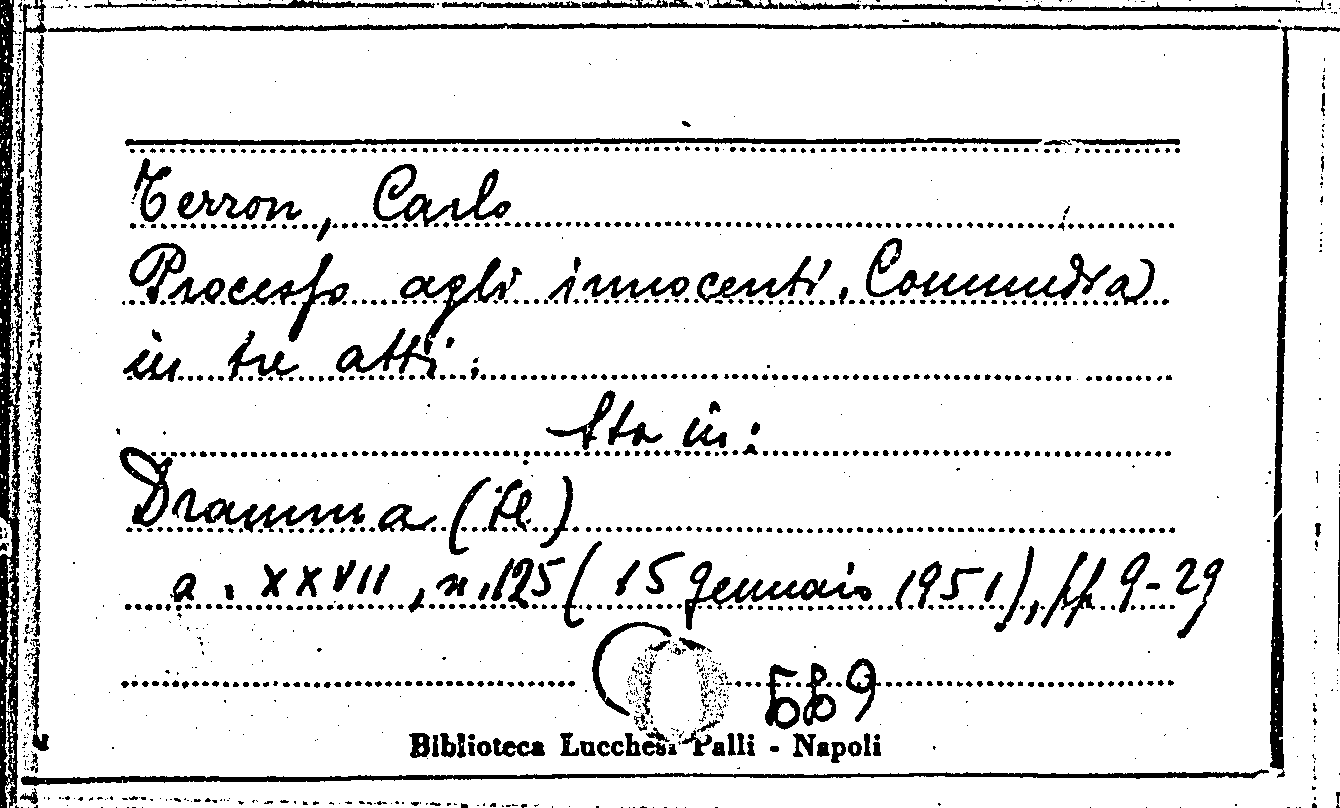 Terron, Carlo
Processo agli innocenti. Commedia
in tre atti.
Sta in:
Dramma (Il)
a. XXVII, n. 125 (15 gennaio 1951), pp 9-29
Biblioteca Lucchesi Palli - Napoli